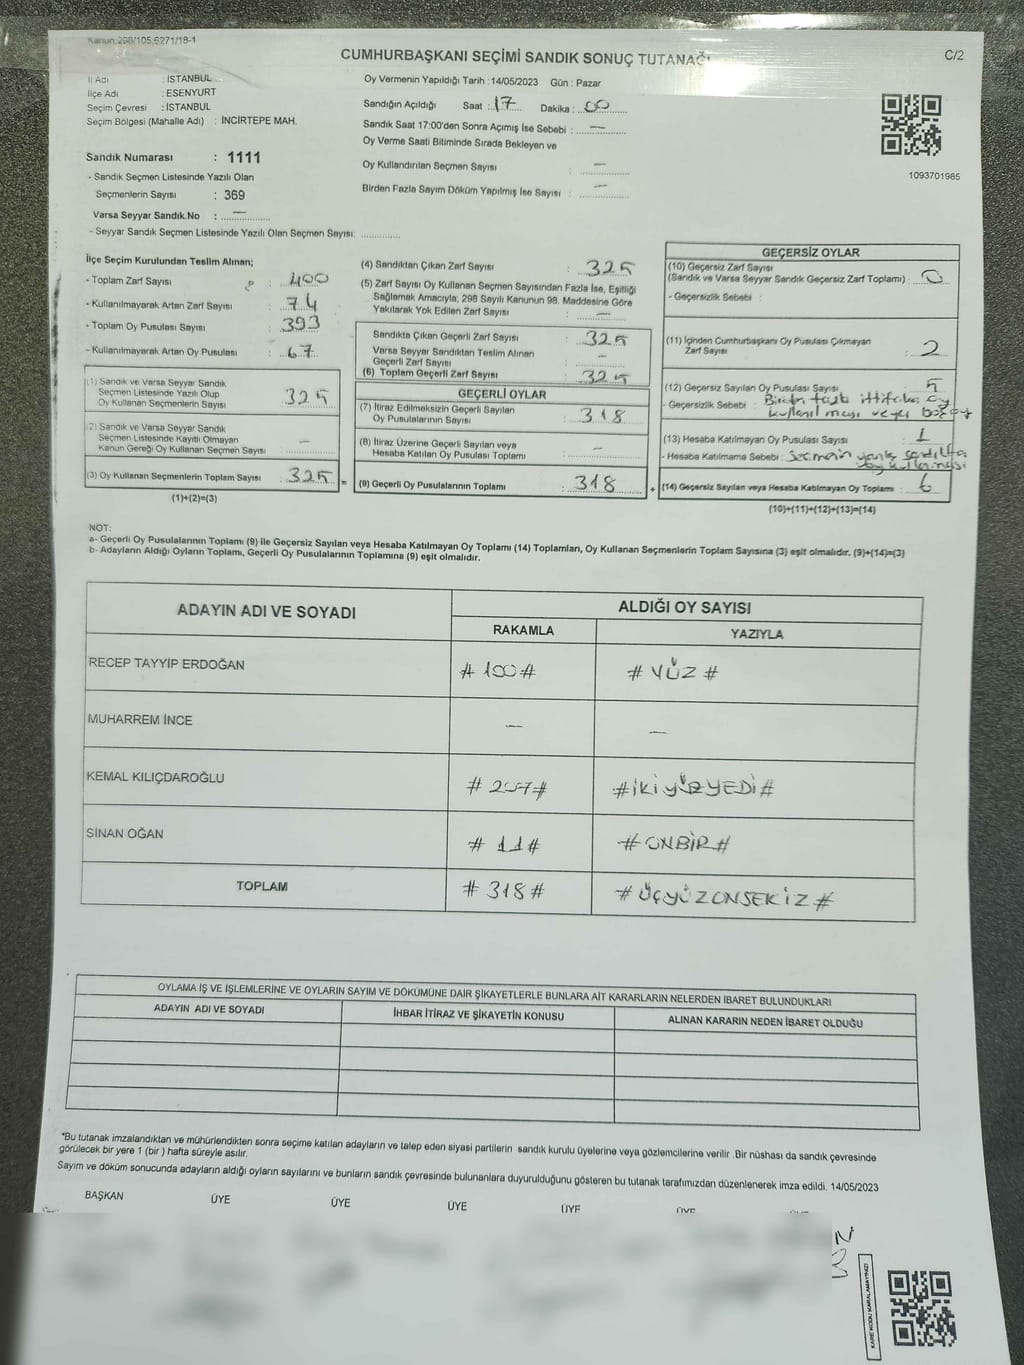 Kanun:298/105,6271/18-1
CUMHURBAŞKANI SEÇİMİ SANDIK SONUÇ TUTANAĞI
C/2
İl Adı : İSTANBUL
İlçe Adı : ESENYURT
Seçim Çevresi : İSTANBUL
Seçim Bölgesi (Mahalle Adı) : İNCİRTEPE MAH.
Oy Vermenin Yapıldığı Tarih : 14/05/2023 Gün : Pazar
Sandığın Açıldığı Saat : 17 Dakika : 00
Sandık Saat 17:00'den Sonra Açımış İse Sebebi : —
Oy Verme Saati Bitiminde Sırada Bekleyen ve
Oy Kullandırılan Seçmen Sayısı : —
Birden Fazla Sayım Döküm Yapılmış İse Sayısı : —
1093701985
Sandık Numarası : 1111
- Sandık Seçmen Listesinde Yazılı Olan
Seçmenlerin Sayısı : 369
Varsa Seyyar Sandık.No : —
- Seyyar Sandık Seçmen Listesinde Yazılı Olen Seçmen Sayısı:
İlçe Seçim Kurulundan Teslim Alınan;
- Toplam Zarf Sayısı : 400
- Kullanılmayarak Artan Zarf Sayısı : 74
- Toplam Oy Pusulası Sayısı : 393
- Kullanılmayarak Artan Oy Pusulası : 67
(1) Sandık ve Varsa Seyyar Sandık
Seçmen Listesinde Yazılı Olup
Oy Kullanan Seçmenlerin Sayısı : 325
(2) Sandık ve Varsa Seyyar Sandık
Seçmen Listesinde Kayıtlı Olmayan
Kanun Gereği Oy Kullanan Seçmen Sayısı : —
(3) Oy Kullanan Seçmenlerin Toplam Sayısı : 325
(1)+(2)=(3)
(4) Sandıktan Çıkan Zarf Sayısı : 325
(5) Zarf Sayısı Oy Kullanan Seçmen Sayısından Fazla İse, Eşitliği
Sağlamak Amacıyla; 298 Sayılı Kanunun 98. Maddesine Göre
Yakılarak Yok Edilen Zarf Sayısı : —
Sandıkta Çıkan Geçerli Zarf Sayısı : 325
Varsa Seyyar Sandıktan Teslim Alınan
Geçerli Zarf Sayısı : —
(6) Toplam Geçerli Zarf Sayısı : 325
GEÇERLİ OYLAR
(7) İtiraz Edilmeksizin Geçerli Sayılan
Oy Pusulalarının Sayısı : 318
(8) İtiraz Üzerine Geçerli Sayılan veya
Hesaba Katılan Oy Pusulası Toplamı : —
(9) Geçerli Oy Pusulalarının Toplamı : 318
GEÇERSİZ OYLAR
(10) Geçersiz Zarf Sayısı
(Sandık ve Varsa Seyyar Sandık Geçersiz Zarf Toplamı) : 0
- Geçersizlik Sebebi :
(11) İçinden Cumhurbaşkanı Oy Pusulası Çıkmayan
Zarf Sayısı : 2
(12) Geçersiz Sayılan Oy Pusulası Sayısı : 5
- Geçersizlik Sebebi : Birden fazla ittifaka oy
kullanılması veya boş oy
(13) Hesaba Katılmayan Oy Pusulası Sayısı : 1
- Hesaba Katılmama Sebebi : Seçmenin yanlış sandıkta
oy kullanması
(14) Geçersiz Sayılan veya Hesaba Katılmayan Oy Toplamı : 6
(10)+(11)+(12)+(13)=(14)
NOT:
a- Geçerli Oy Pusulalarının Toplamı (9) ile Geçersiz Sayılan veya Hesaba Katılmayan Oy Toplamı (14) Toplamları, Oy Kullanan Seçmenlerin Toplam Sayısına (3) eşit olmalıdır. (9)+(14)=(3)
b- Adayların Aldığı Oyların Toplamı, Geçerli Oy Pusulalarının Toplamına (9) eşit olmalıdır.
ADAYIN ADI VE SOYADI
ALDIĞI OY SAYISI
RAKAMLA
YAZIYLA
RECEP TAYYİP ERDOĞAN # 100 # # YÜZ #
MUHARREM İNCE — —
KEMAL KILIÇDAROĞLU # 207 # # İKİYÜZYEDİ #
SİNAN OĞAN # 11 # # ONBİR #
TOPLAM # 318 # # ÜÇYÜZONSEKİZ #
OYLAMA İŞ VE İŞLEMLERİNE VE OYLARIN SAYIM VE DÖKÜMÜNE DAİR ŞİKAYETLERLE BUNLARA AİT KARARLARIN NELERDEN İBARET BULUNDUKLARI
ADAYIN ADI VE SOYADI
İHBAR İTİRAZ VE ŞİKAYETİN KONUSU
ALINAN KARARIN NEDEN İBARET OLDUĞU
*Bu tutanak imzalandıktan ve mühürlendikten sonra seçime katılan adayların ve talep eden siyasi partilerin sandık kurulu üyelerine veya gözlemcilerine verilir .Bir nüshası da sandık çevresinde
görülecek bir yere 1 (bir ) hafta süreyle asılır.
Sayım ve döküm sonucunda adayların aldığı oyların sayılarını ve bunların sandık çevresinde bulunanlara duyurulduğunu gösteren bu tutanak tarafımızdan düzenlenerek imza edildi. 14/05/2023
BAŞKAN ÜYE ÜYE ÜYE ÜYE ÜYE ÜYE
KARE KODU KARALAMAYINIZ!